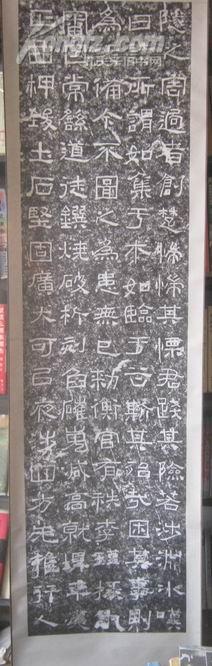 隧之害過者創楚惴惴其慄君踐其險若涉淵冰嘆
曰詩所謂如集于木如臨于谷斯其殆哉困其事則
為設備今不圖之為患無已勑衡官有秩李瑾掾仇
審因常繇道徒鐉燒破析刻臽磪嵬減高就埤平夷
正曲柙致土石堅固廣大可以夜涉四方无雍行人